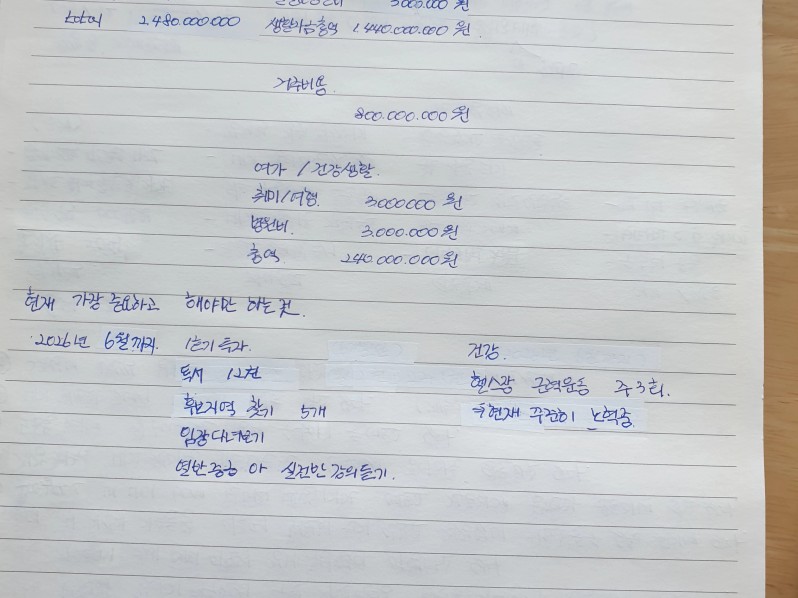 3000.000 원
total 2.480.000.000 생활비총액 1.440.000.000 원.
거주비용.
800.000.000 원
여가 / 건강생활.
취미/여행. 3.000.000 원
병원비. 3.000.000 원
총액 240.000.000 원
현재 가장 중요하고 해야만 하는것.
2026년 6월까지. 1호기 투자. 건강.
독서 12권 헬스장 근력운동 주3회.
후보지역 찾기 5개 현재 꾸준히 노력중.
임장다녀오기
열반중급 아 실전반 강의듣기.